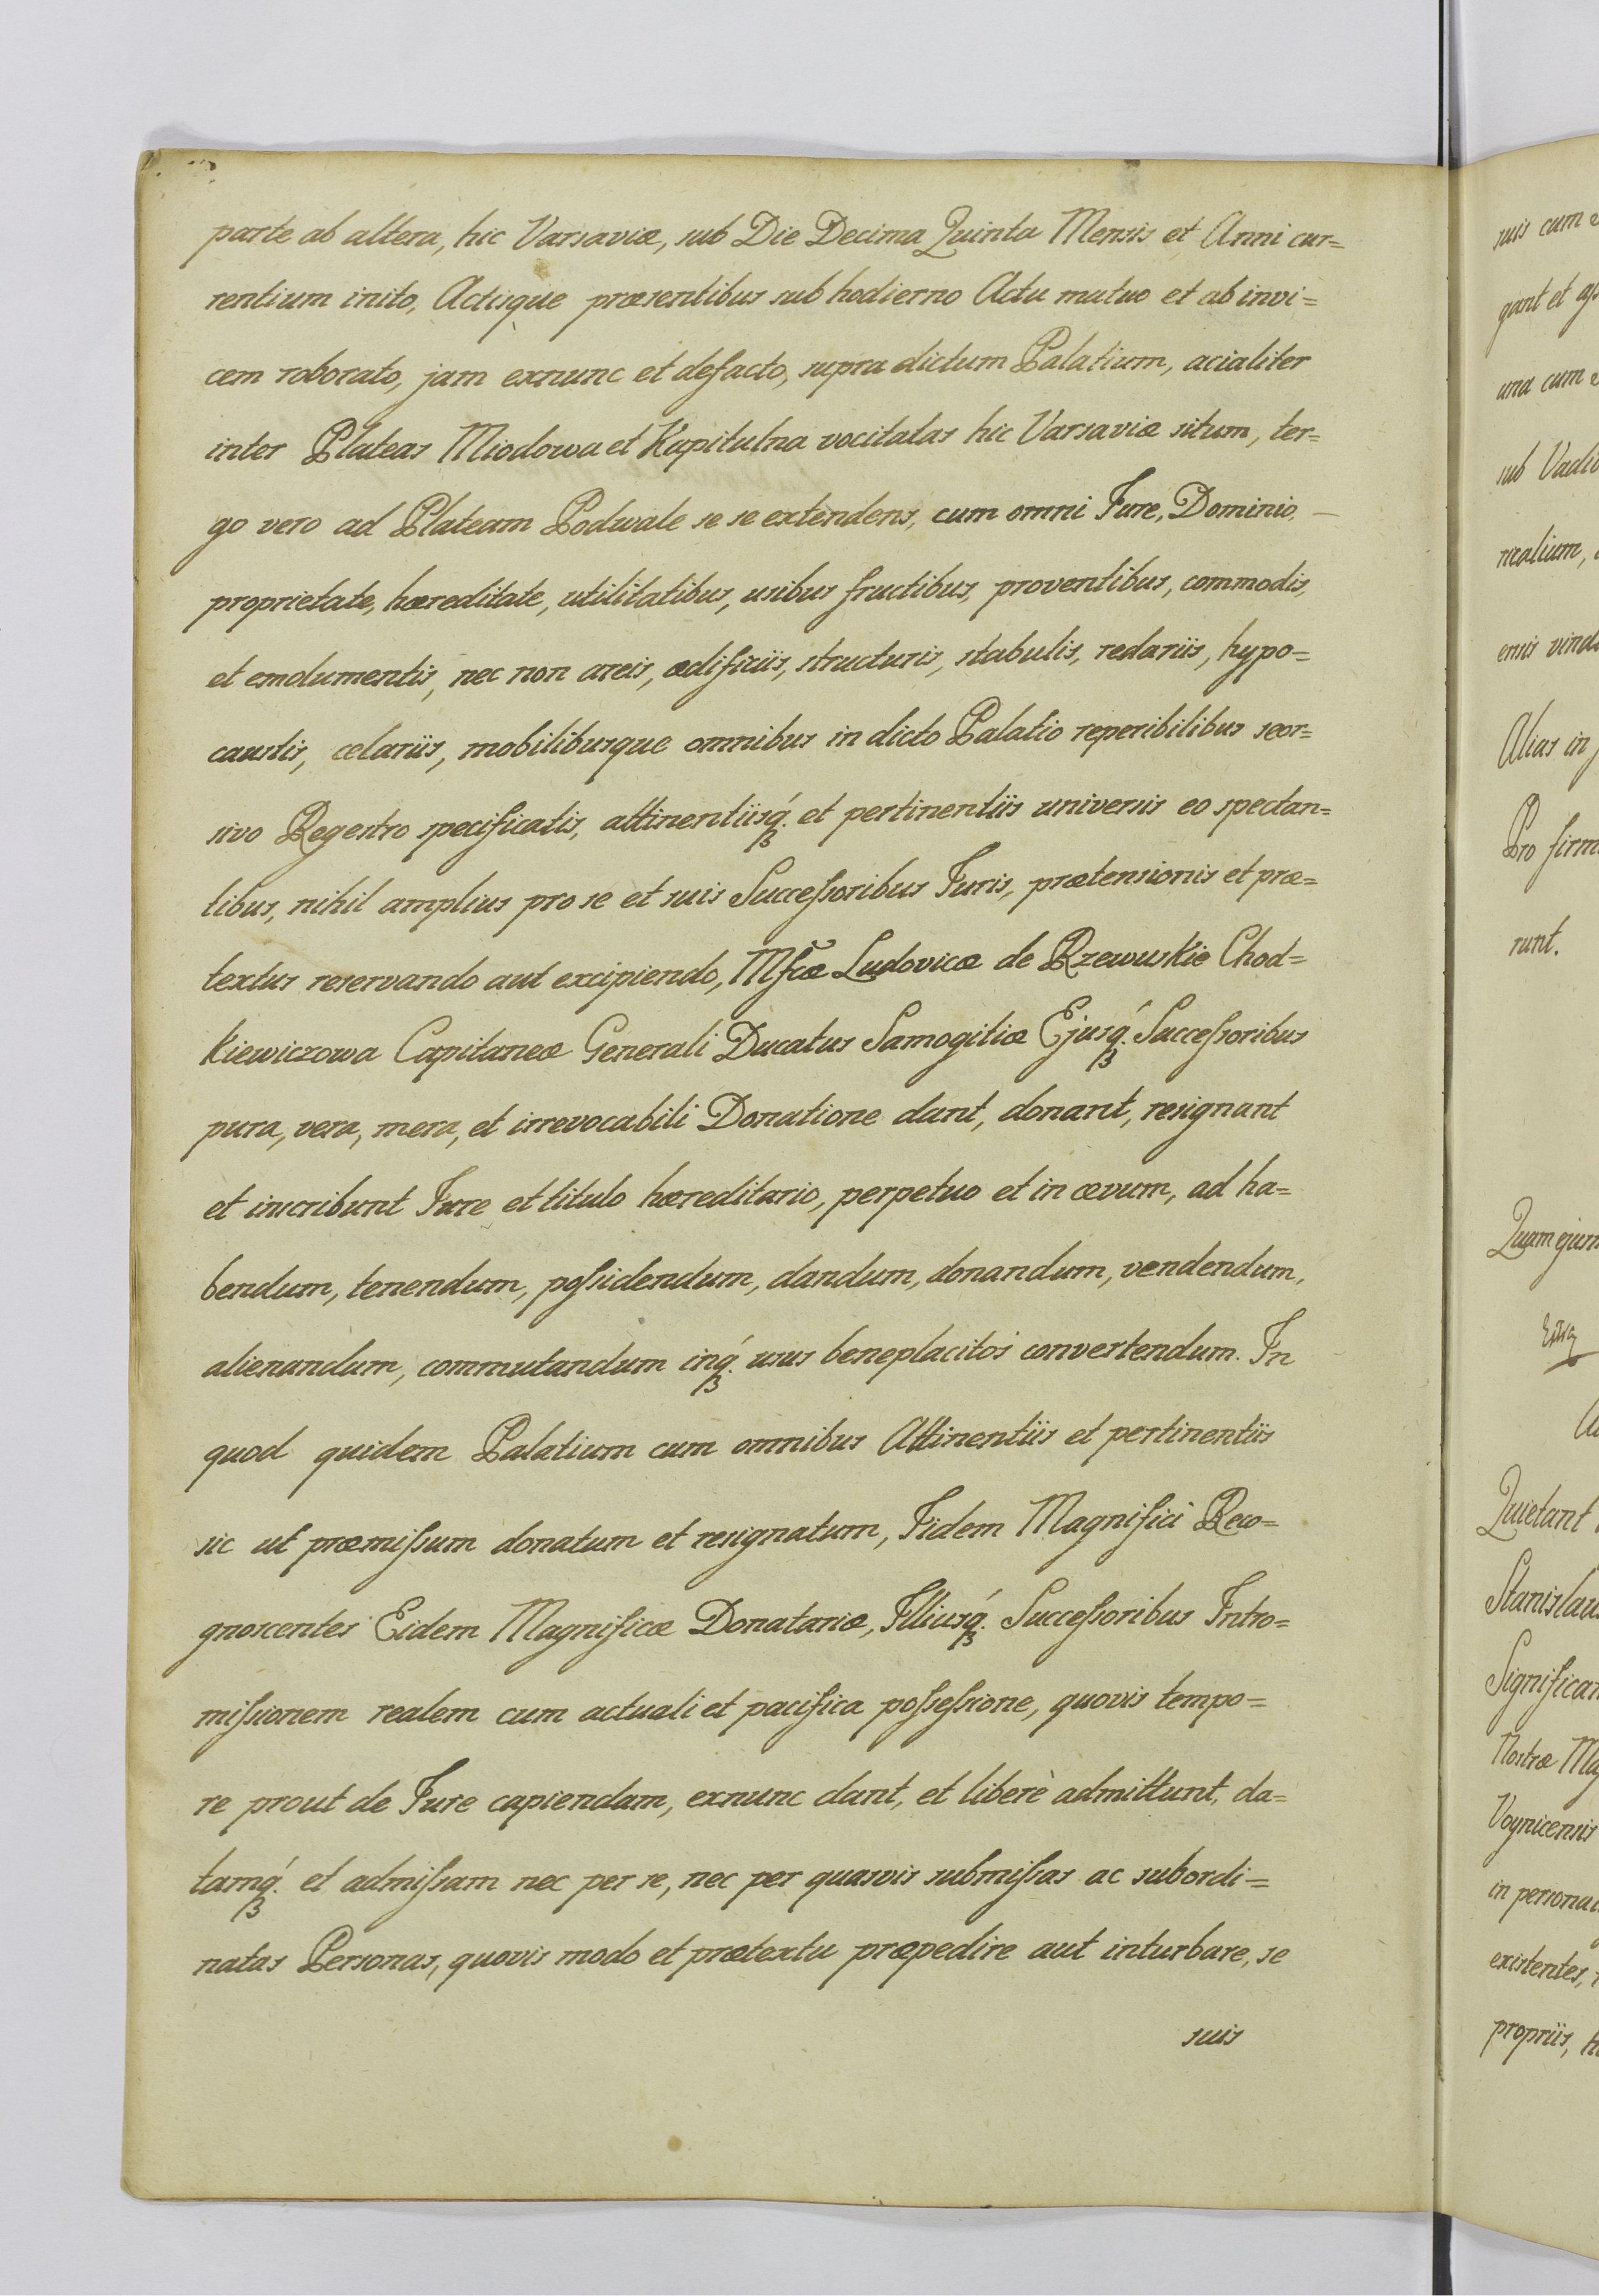 parte ab altera, hic Varsaviæ, sub Die Decima Quinta Mensis et Anni cur=
rentium inito, Actisque præsentibus sub hodierno Actu mutuo et ab invi=
cem roborato, jam exnunc et defacto, supra dictum Palatium, acialiter
inter Plateas Miodowa et Kapitulna vocitatas hic Varsaviæ situm, ter=
go vero ad Plateam Podwale se se extendens, cum omni Jure, Dominio, —
proprietate, hæreditate, utilitatibus, usibus fructibus, proventibus, commodis,
et emolumentis, nec non areis, ædificiis, structuris, stabulis, redariis, hypo=
caustis, celariis, mobilibusque omnibus in dicto Palatio reperibilibus seor=
sivo Regestro specificatis, attinentiisq́. et pertinentiis universis eo spectan=
tibus, nihil amplius pro se et suis Successoribus Juris, prætensionis et præ=
textus reservando aut excipiendo, Mfcæ Ludovicæ de Rzewuskie Chod=
kiewiczowa Capitaneæ Generali Ducatus Samogitiæ Ejusq́. Successoribus
pura, vera, mera, et irrevocabili Donatione dant, donant, resignant
et inscribunt Jure et titulo hæreditario, perpetuo et in ævum, ad ha=
bendum, tenendum, possidendum, dandum, donandum, vendendum,
alienandum, commutandum inq́. usus beneplacitos convertendum. In
quod quidem Palatium cum omnibus Attinentiis et pertinentiis
sic ut præmissum donatum et resignatum, Iidem Magnifici Reco=
gnoscentes Eidem Magnificæ Donatariæ, Illiusq́. Successoribus Intro=
missionem realem cum actuali et pacifica possessione, quovis tempo=
re prout de Jure capiendam, exnunc dant, et liberè admittunt, da=
tamq́. et admissam nec per se, nec per quasvis submissas ac subordi=
natas Personas, quovis modo et prætextu præpedire aut inturbare, se
suis
suis cum
gant et
una cum
sub Vadio
Alias in
Pro firm
runt.
Quam ejus
Quietant
Stanislaus
Significan
Nostræ
Voynicensis
in persona
existentes,
propriis,